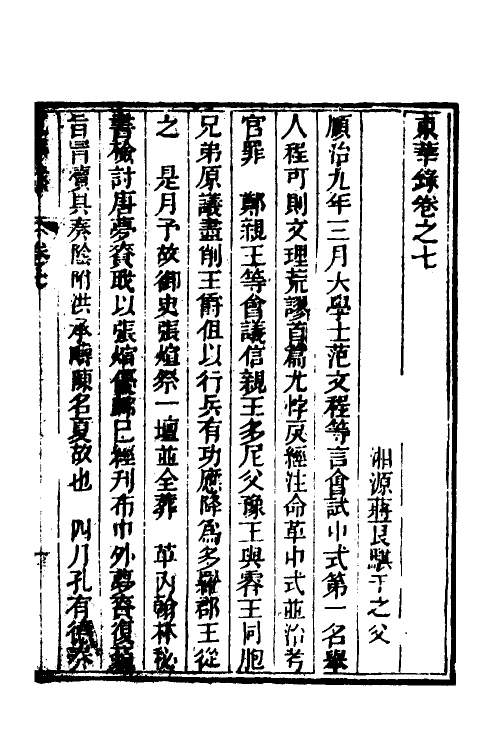 東華錄卷之七
湘源蔣良騏千之父
順治九年三月大學士范文程等言會試中式第一名舉
人程可則文理荒謬首篇尤悖戾經注命革中式並治考
官罪　鄭親王等會議信親王多尼父豫王與睿王同胞
兄弟原議盡削王爵但以行兵有功應降為多羅郡王從
之　是月予故御史張煊祭一壇並全葬　革內翰林秘
書檢討唐夢賚職以張煊優卹已經刊布中外夢賚復
旨胃瀆具奏陰附洪承疇陳名夏故也　四月孔有德